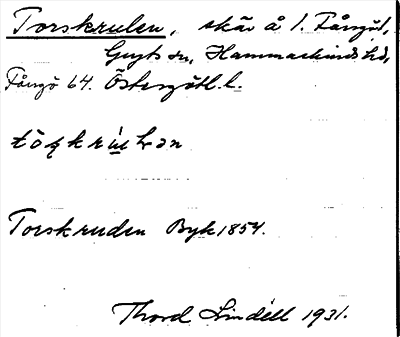 Torskrulen, skär å l. Fångö,
Gryts sn, Hammarkinds hd,
Fångö 64. Östergötl. l.
Torskruden Byk 1854.
Thord Lindéll 1931.